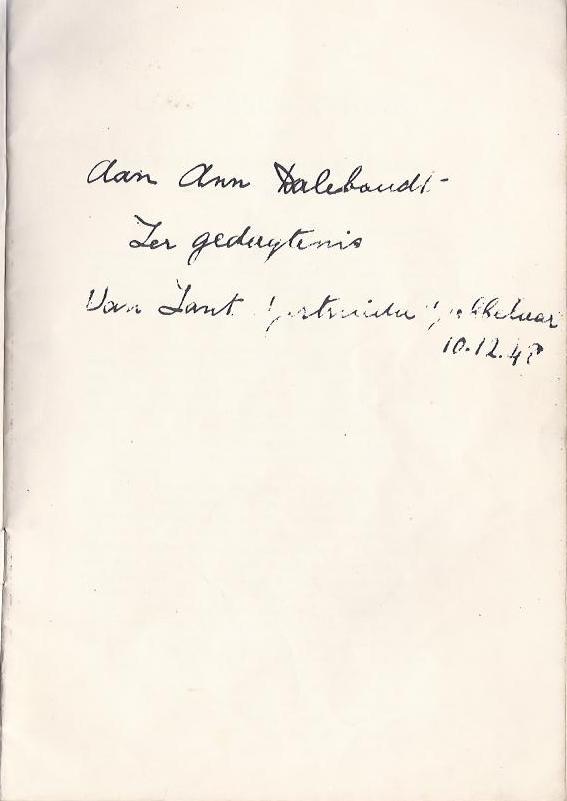 Aan Ann Daleboudt-
Ter gedaytenis
Van Tant Gertruida
10.12.48